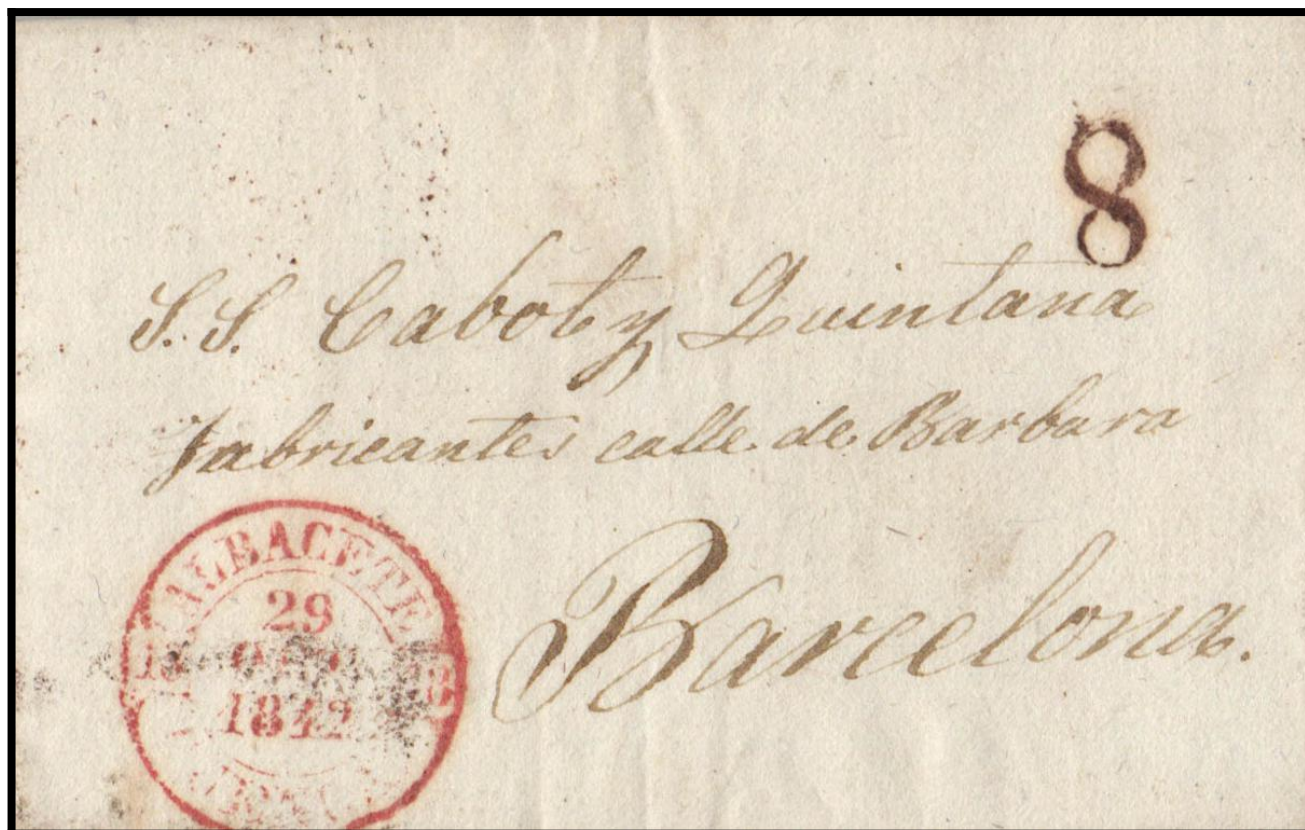 8
S.S. Cabot y Quintana
fabricantes calle de Barbara
Barcelona.
ALBACETE
29
1842